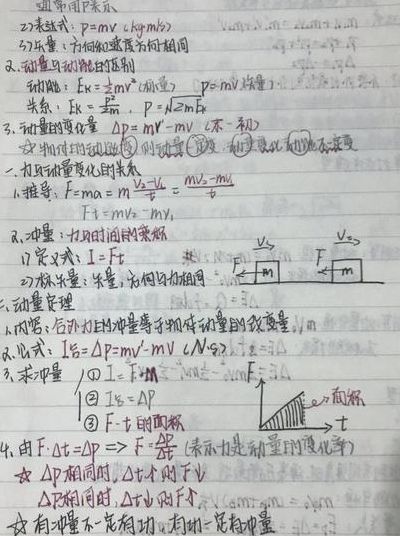 通常用P表示
2)表达式: p=mv (kg·m/s)
3)矢量: 方向和速度方向相同
2.动量与动能的区别
动能: Ek=½mv²(标量) p=mv(矢量)
关系: Ek=p²/2m, p=√2mEk
3.动量的变化量 Δp=mv'-mv (末-初)
一.力与动量变化的关系
1.推导: F=ma=m(v₂-v₁)/t=(mv₂-mv₁)/t
Ft=mv₂-mv₁
2.冲量: 力与时间的乘积
1)定义式: I=Ft
2)标矢量: 矢量,方向与力相同
F m F m
二.动量定理
1.内容: 合外力的冲量等于物体动量的改变量
2.公式: I合=Δp=mv'-mv (N·s)
3.求冲量 ① I=F
② I合=Δp
③ F-t的面积
F 面积 t
4.由F·Δt=Δp => F=Δp/Δt (表示力是动量的变化率)
☆ Δp相同时,Δt↑则F↓
Δp相同时,Δt↓则F↑
☆ 有冲量不一定有功,有功一定有冲量